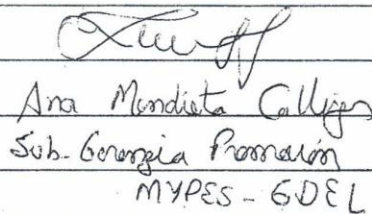 Ana Mendieta Callirgos
Sub-Gerencia Promoción
MYPES - GDEL